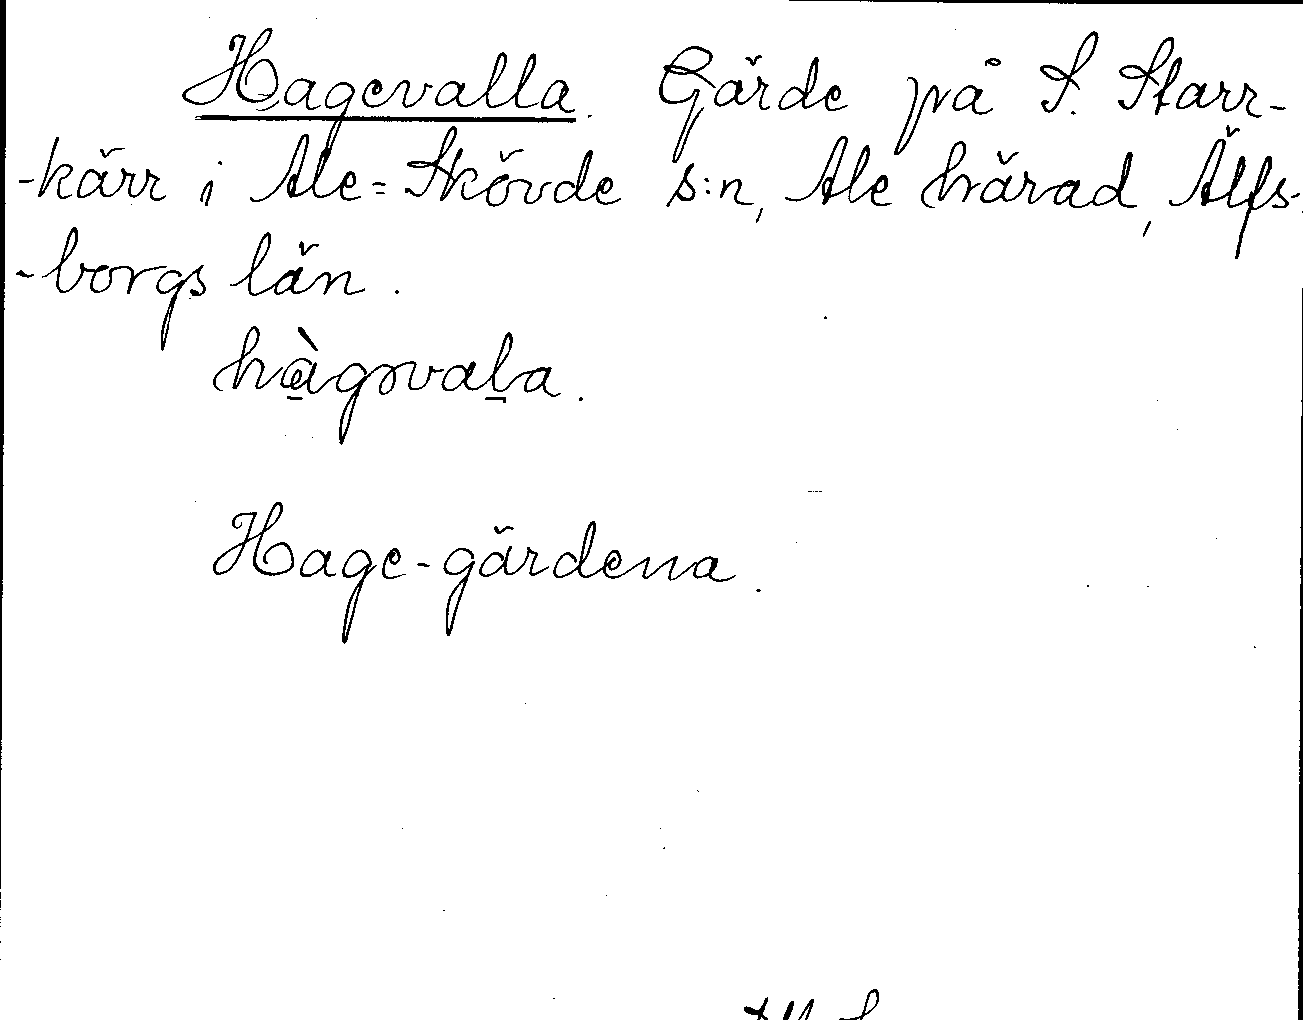 Hagevalla. Gärde på S. Starr-
-kärr i Ale=Skövde s:n, Ale härad, Älfs-
-borgs län.
hàgəvaḻa.
Hage-gärdena.